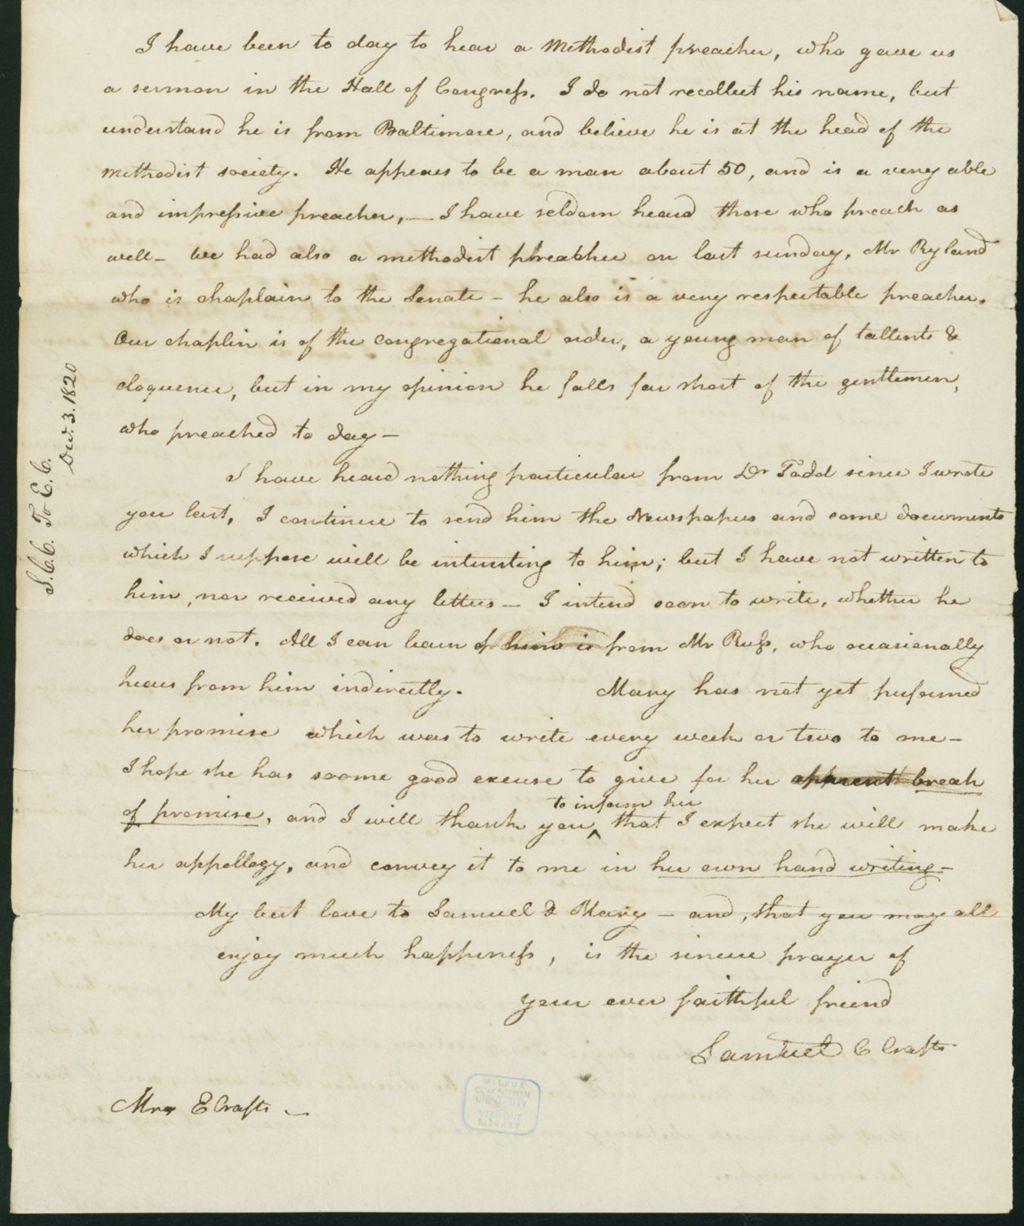 I have been to day to hear a Methodist preacher, who gave us
a sermon in the Hall of Congress. I do not recollect his name, but
understand he is from Baltimore, and believe he is at the head of the
Methodist society. He appears to be a man about 50, and is a very able
and impressive preacher, — I have seldom heard those who preach as
well — We had also a methodist preacher on last sunday, Mr Ryland
who is chaplain to the Senate — he also is a very respectable preacher.
Our chaplin is of the congregational order, a young man of tallents &
eloquence, but in my opinion he falls far short of the gentlemen,
who preached to day —
I have heard nothing particular from Dr Todd since I wrote
you last, I continue to send him the Newspapers and some documents
which I suppose will be interesting to him; but I have not written to
him, nor received any letters — I intend soon to write, whether he
does or not. All I can learn of him is from Mr Russ, who occasionally
hears from him indirectly. Mary has not yet performed
her promise which was to write every week or two to me —
I hope she has soome good excuse to give for her apparent breach
of promise, and I will thank you to inform her that I expect she will make
her appellogy, and convey it to me in her own hand writing —
My best love to Samuel & Mary — and, that you may all
enjoy much happiness, is the sincere prayer of
your ever faithful friend
Samuel C Crafts
Mrs E Crafts —
S.C.C. To E.C.
Dec. 3. 1820